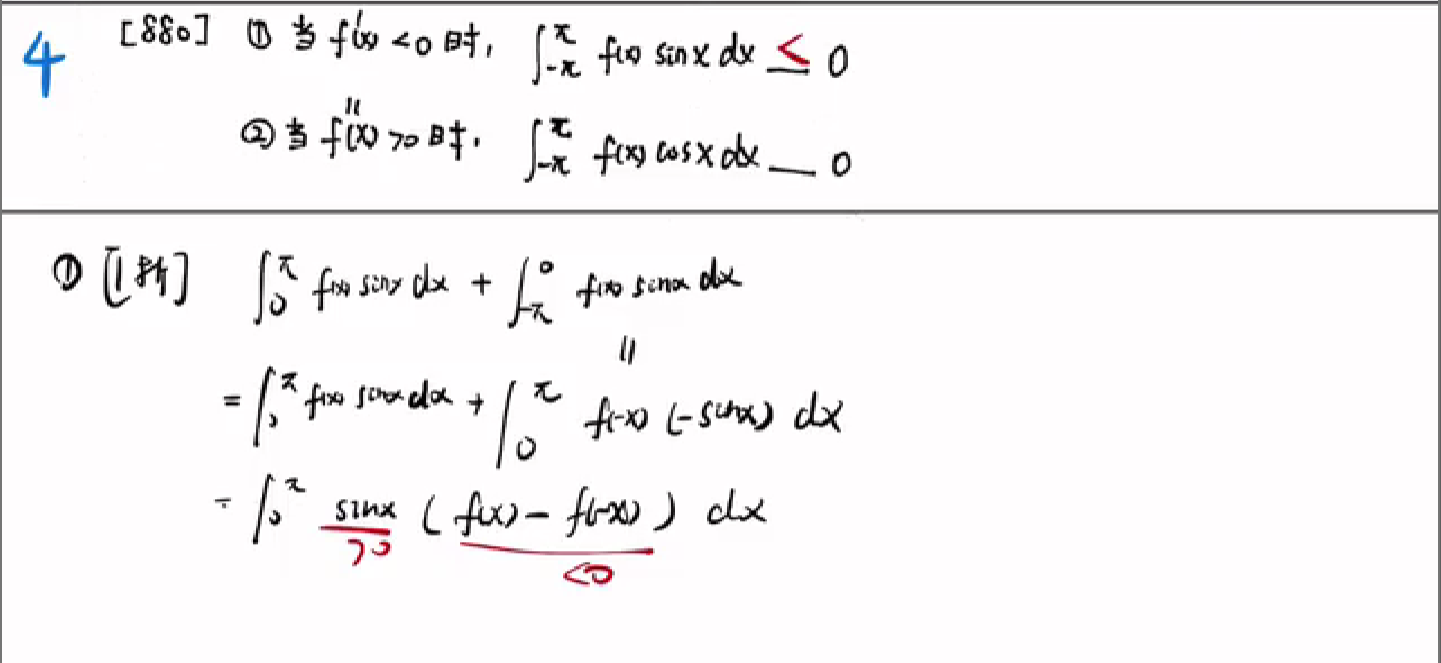 4 [880] ① 当 f'(x) <0 时, ∫_{-π}^{π} f(x) sinx dx ≤ 0
② 当 f''(x) >0 时. ∫_{-π}^{π} f(x) cosx dx __ 0
① [析] ∫_0^π f(x) sinx dx + ∫_{-π}^0 f(x) sinx dx
||
= ∫_0^π f(x) sinx dx + ∫_0^π f(-x) (-sinx) dx
= ∫_0^π sinx ( f(x) - f(-x) ) dx
>0 <0